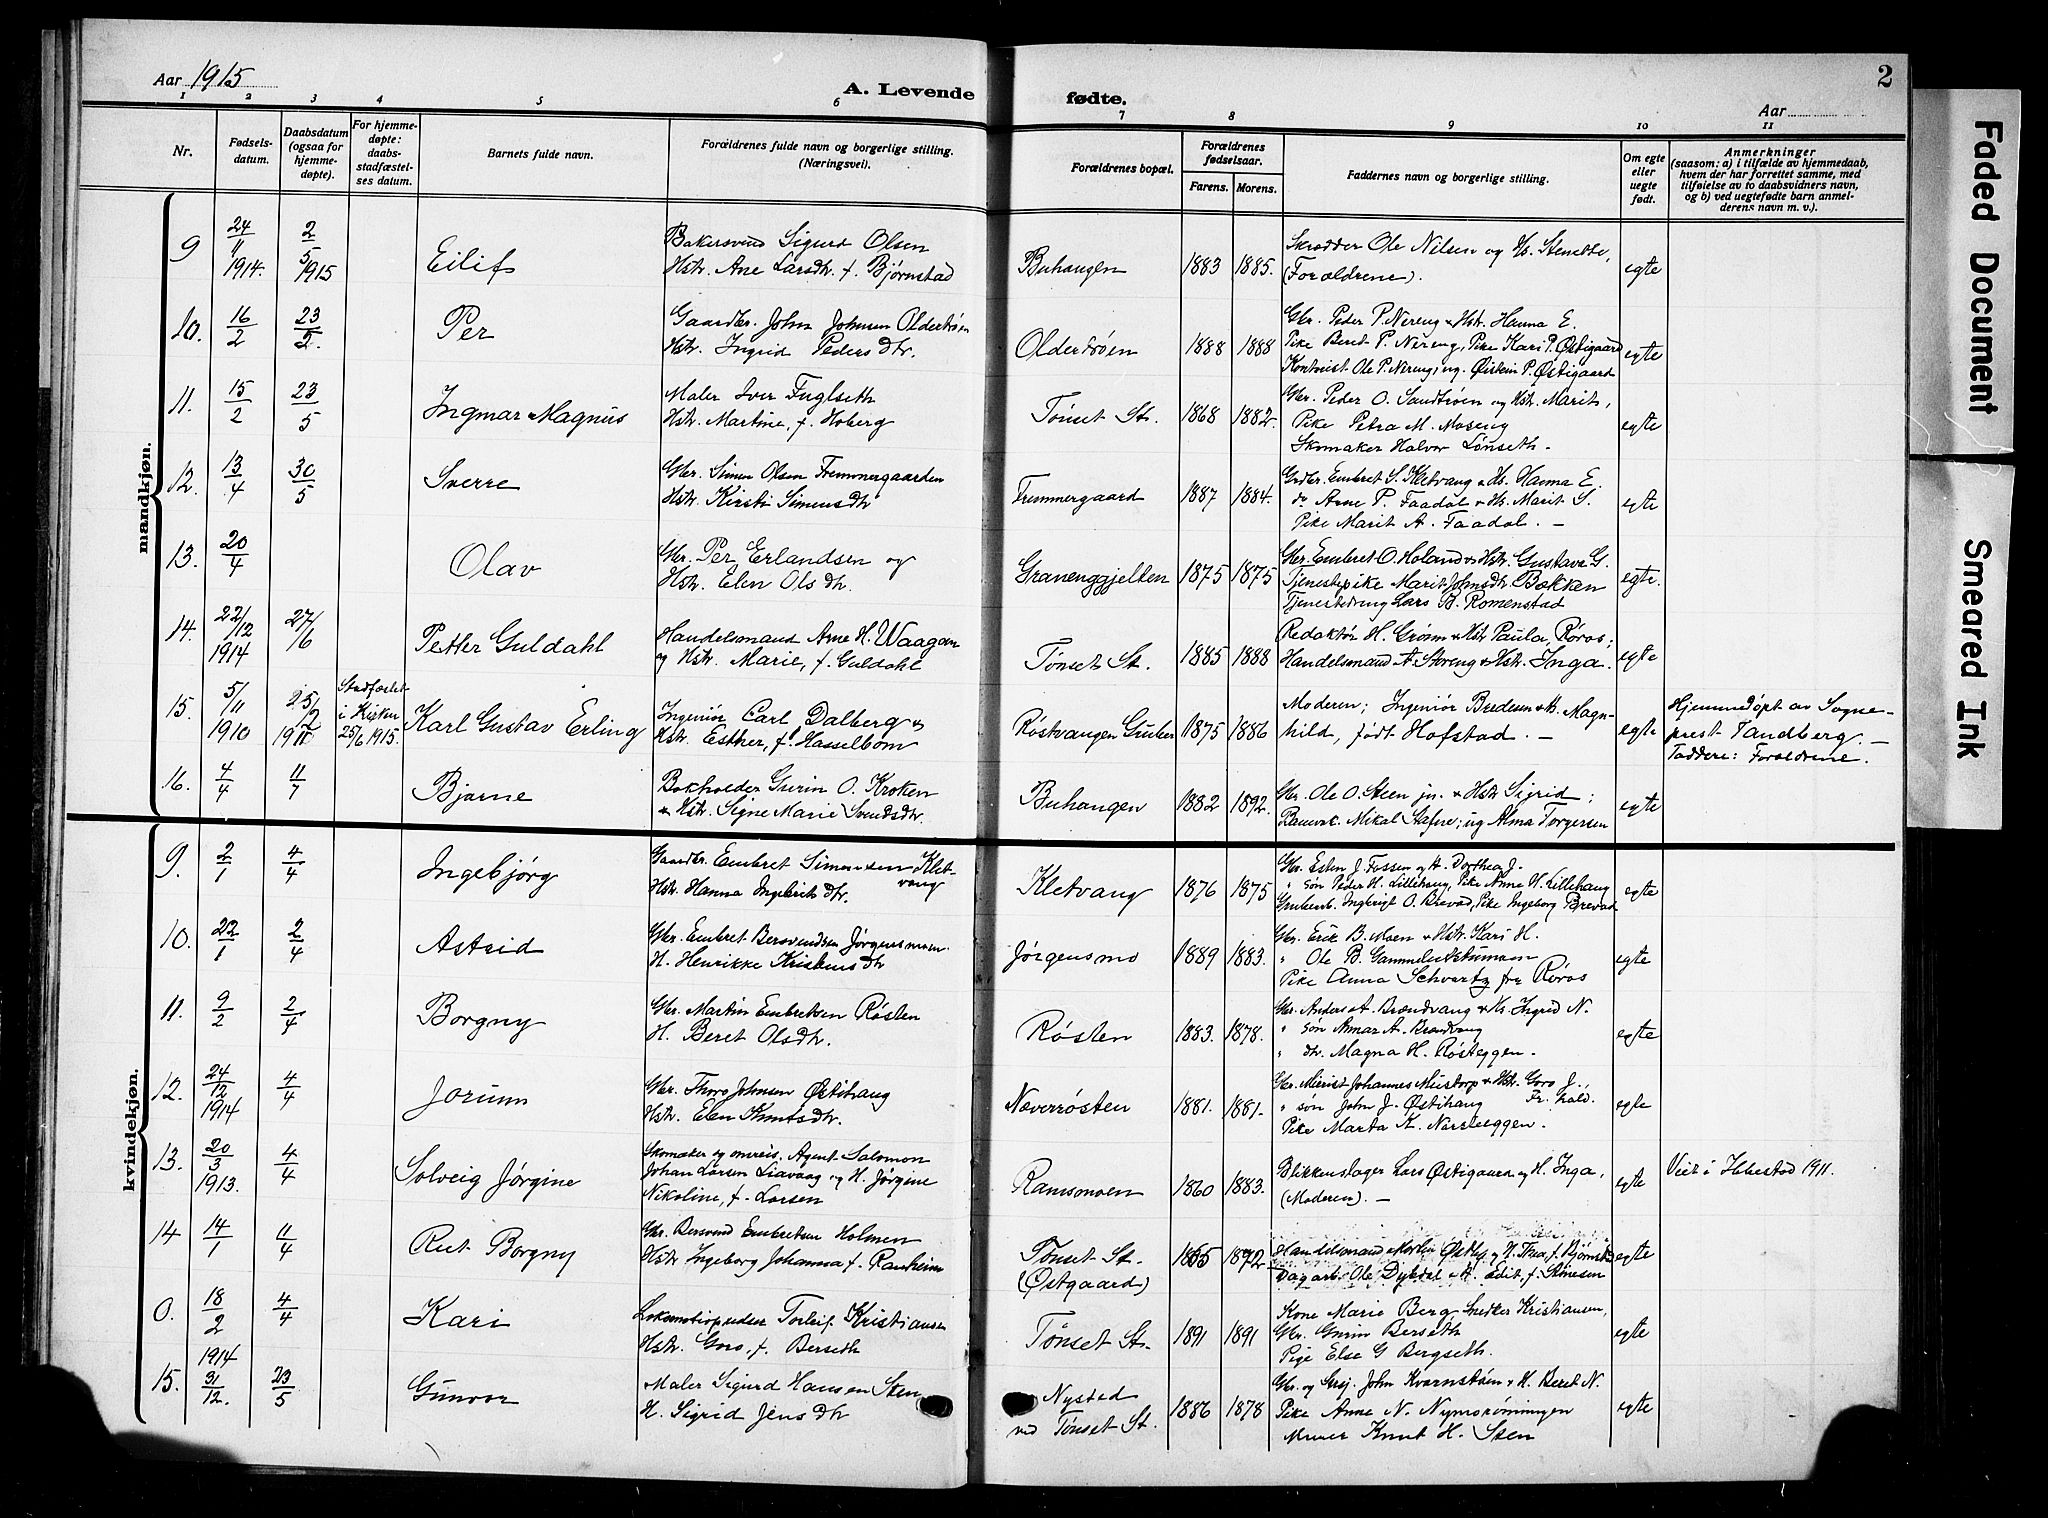 Aar 1915
A. Levende fødte.
Aar
2
Faded Document
Smeared Ink
1 2 3 4 5 6 7 8 9 10 11
Nr.
Fødsels-
datum.
Daabsdatum
(ogsaa for
hjemme-
døpte).
For hjemme-
døpte:
daabs-
stadfæstel-
ses datum.
Barnets fulde navn.
Forældrenes fulde navn og borgerlige stilling.
(Næringsvei).
Forældrenes bopæl.
Forældrenes
fødselsaar.
Farens. Morens.
Faddernes navn og borgerlige stilling.
Om egte
eller
uegte
født.
Anmerkninger
(saasom: a) i tilfælde av hjemmedaab,
hvem der har forrettet samme, med
tilføielse av to daabsvidners navn,
og b) ved uegtefødte barn anmel-
derens navn m. v.).
mandkjøn.
9 24/11 1914. 2/5 1915 Eilif
Bakersvend Sigurd Olsen
Hstr. Ane Larsdtr. f. Bjørnstad
Buhaugen 1883 1885.
Skrædder Ole Nilsen og Hs.
(Forældrene).
egte
10. 16/2 23/5. Per
Gaardbr. John Johnsen Oldertrøen
Hstr. Ingrid Pedersdtr.
Oldertrøen 1888 1888
Gbr. Peder P. Nereng & Hstr. Hanna E.
Pike Beret P. Nereng, Pike Kari P. Østigaard
Ole P. Nereng, ug. Øistein P. Østigaard
egte
11. 15/2 23/5 Ingmar Magnus
Maler Iver Fuglseth
Hstr. Martine, f. Hoberg
Tønset St. 1868 1882.
Gbr. Peder O. Sandtrøen og Hstr. Marit,
Pike Petra M. Moseng
Skomaker Halvor Lønseth.
egte
12. 13/4 30/5 Sverre
Gbr. Simen Olsen Fremmergaarden
Hstr. Kirsti Simensdtr
Fremmergaard 1887 1884.
Grdbr. Embret S. Kletvang & Hs. Hanna E.
do Arne P. Faadal & Hs. Marit S.
Pike Marit A. Faadal. —
egte
13. 20/4 Olav
Gbr. Per Erlandsen og
Hstr. Elen Olsdtr.
Granenggjelten 1875 1875
Gbr. Embret O. Holand & Hstr. Gustava G.
Tjenestepike Marit Johnsdtr. Bækken
Tjenestedreng Lars B. Romenstad
egte.
14. 22/12 1914 27/6 Petter Guldahl
Handelsmand Arne H. Waagan
og Hstr. Marie, f. Guldahl
Tønset St. 1885 1888
Redaktør H. Grønn & Hstr Paula, Røros;
Handelsmand A. Storeng & Hstr. Inga.
egte
15. 5/11 1910 25/12 1911
Stadfæstet
i Kirken
25/6 1915.
Karl Gustav Erling
Ingeniør Carl Dalberg &
Hstr. Esther, f. Hasselbom
Røstvangen Gruber 1875 1886
Moderen; Ingeniør Bredesen & H. Magn-
hild, født Hofstad. —
egte
Hjemmedøpt av Sogne-
prest Tandberg. —
Faddere: Forældrene.
16. 4/4 11/7 Bjarne
Bokholder Gurin O. Kroken
& Hstr. Signe Marie Svendsdtr.
Buhaugen 1882 1892.
Gbr. Ole O. Steen jr. & Hstr Sigrid;
Mikal Stafne; ug Alma Torgersen
egte
kvindekjøn.
9. 2/1 4/4 Ingebjørg
Gaardbr. Embret Simensen Klet-
vang
Hstr. Hanna Ingebritsdtr.
Kletvang 1876 1875
Gbr. Esten J. Fossen og H. Dorthea J.
" søn Peder H. Lillehaug, Pike Anne H. Lillehaug
Grubearb. Ingbrigt O. Brevad, Pike Ingeborg Brevad
egte
10. 22/1 2/4 Astrid
Gbr. Embret Bersvendsen Jørgensmoen.
H. Henrikke Kristensdtr
Jørgensmo 1889 1883.
Gbr. Erik B. Moen & Hstr. Kari H.
" Ole B. Gammelerstumoen
Pike Anna Schvartz fra Røros
egte
11. 9/2 2/4 Borgny
Gbr. Martin Embretsen Røsten
H. Beret Olsdtr.
Røsten 1883. 1878.
Gbr. Anders A. Brandvang & Hs. Ingrid N.
" søn Annar A. Brandvang
" dtr. Magna H. Røsteggen.
egte
12. 24/12 1914 4/4 Jorunn
Gbr. Thoro Johnsen Østihaug
Hstr. Elen Knutsdtr.
Næverrøsten 1881. 1881.
Gbr. Johannes Mustorp & Hstr. Goro J.
" søn John J. Østihaug
Pike Marta K. Narsteeggen.
egte
13. 20/3 1913. 4/4 Solveig Jørgine
Skomaker og omreis. Agent Salomon
Johan Larsen Liavaag og H. Jørgine
Nikoline, f. Larsen
Ramsmoen 1860 1883.
Blikkenslager Lars Østigaard og H. Inga,
(Moderen). —
egte
Viet i Ibestad 1911.
14 14/1 11/4 Rut Borgny
Gbr. Bersvend Embretsen Holmen
Hstr. Ingeborg Johanna f. Ranheim
Tønset St.
(Østgaard)
1865 1872.
Handelsmand Martin Østby og H. Thea, f. Bjørnstad
Dagarb. Ole Dykdal & H. Edit, f. Stenesen
egte
0. 18/2 4/4 Kari
Lokomotivpudser Torleif Kristiansen
Hstr. Goro, f. Berseth
Tønset St. 1891 1891
Kone Marie Berg Snedker Kristiansen,
Gbr. Gunn Berseth
Pige Else G Bergseth.
egte
15. 1914 31/12. 23/5 Gunvor
Maler Sigurd Hansen Sten
H. Sigrid Jensdtr
Nystad
ved Tønset St.
1886 1878
Gbr. og Grsj. John Kvernstrøen & H. Beret N.
Pike Anne N. Nymorømningen
Murer Knut H. Sten
egte